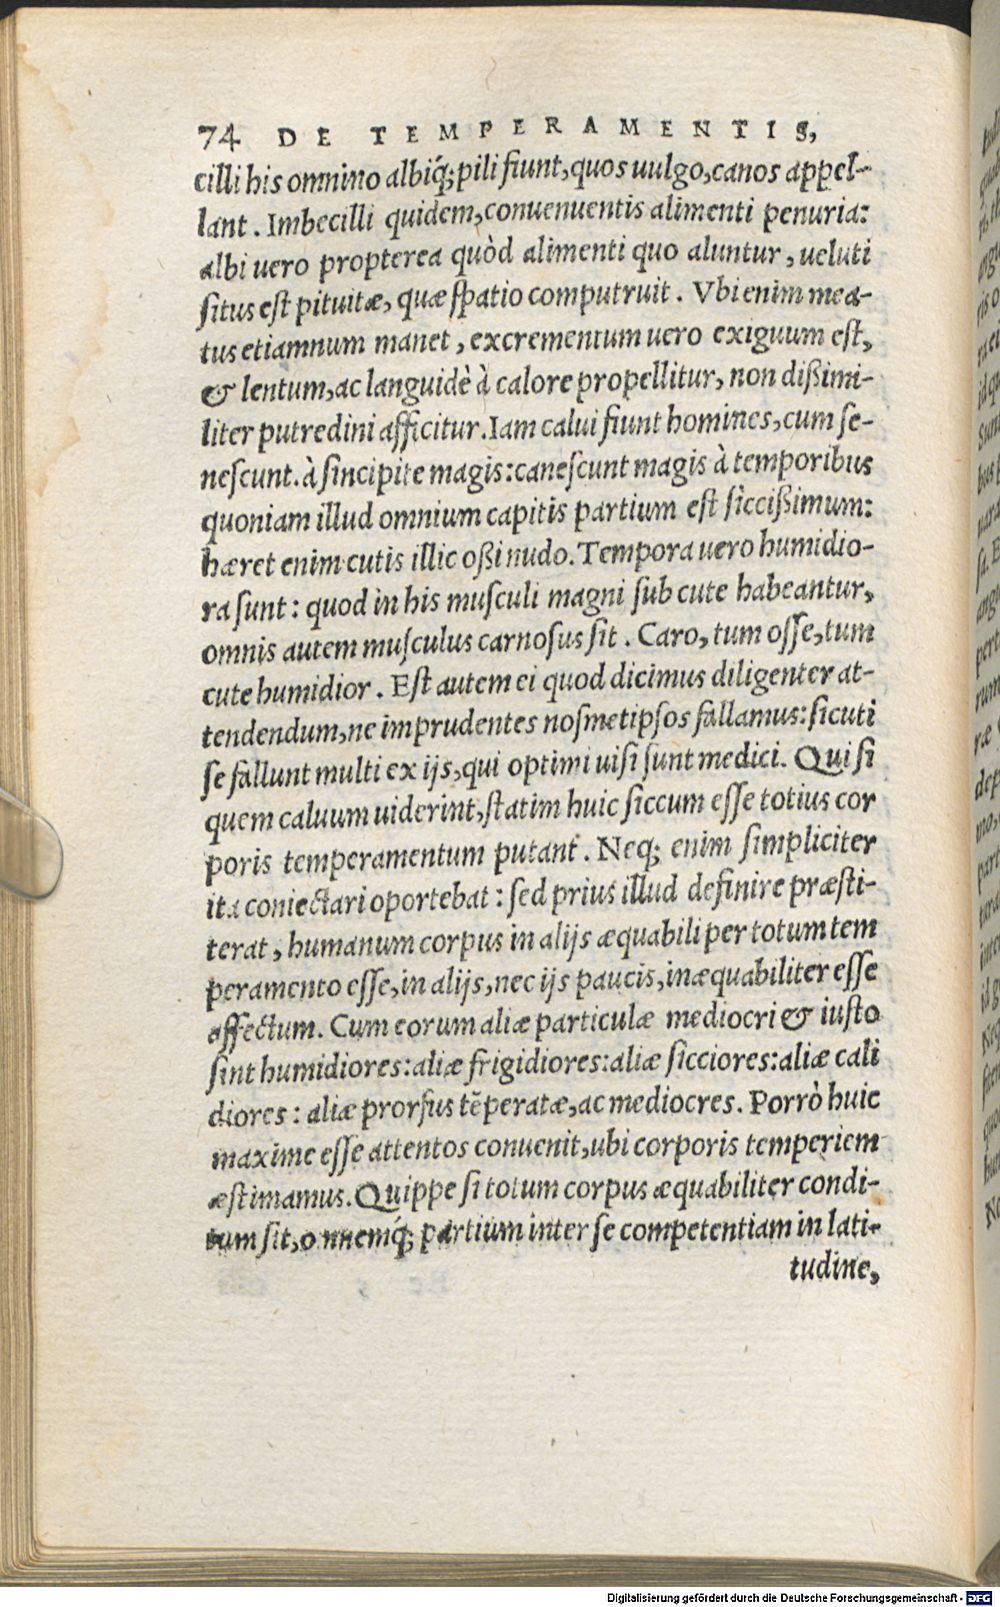 74 DE TEMPERAMENTIS,
cilli his omnino albiq́;pili fiunt,quos uulgo,canos appel-
lant. Imbecilli quidem,conuenuentis alimenti penuria:
albi uero propterea quòd alimenti quo aluntur, ueluti
ſitus eſt pituitæ, quæ ſpatio computruit. Vbi enim mea-
tus etiamnum manet, excrementum uero exiguum eſt,
& lentum,ac languidè à calore propellitur, non dißimi-
liter putredini afficitur. Iam calui fiunt homines, cum ſe-
neſcunt. à ſincipite magis: caneſcunt magis à temporibus
quoniam illud omnium capitis partium eſt ſiccißimum:
hæret enim cutis illic oßi nudo. Tempora uero humidio-
ra ſunt: quod in his muſculi magni ſub cute habeantur,
omnis autem muſculus carnoſus ſit. Caro, tum oſſe, tum
cute humidior. Eſt autem ei quod dicimus diligenter at-
tendendum, ne imprudentes noſmetipſos fallamus: ſicuti
ſe fallunt multi ex ijs,qui optimi uiſi ſunt medici. Qui ſi
quem caluum uiderint,ſtatim huic ſiccum eſſe totius cor
poris temperamentum putant. Neq; enim ſimpliciter
ita coniectari oportebat: ſed prius illud definire præſti-
terat, humanum corpus in alijs æquabili per totum tem
peramento eſſe, in alijs, nec ijs paucis, inæquabiliter eſſe
affectum. Cum eorum aliæ particulæ mediocri & iuſto
ſint humidiores: aliæ frigidiores: aliæ ſicciores: aliæ cali
diores: aliæ prorſus tẽperatæ, ac mediocres. Porrò huic
maxime eſſe attentos conuenit, ubi corporis temperiem
æſtimamus. Quippe ſi totum corpus æquabiliter condi-
tum ſit, omnemq́; partium inter ſe competentiam in lati-
tudine,
Digitalisierung gefördert durch die Deutsche Forschungsgemeinschaft - DFG